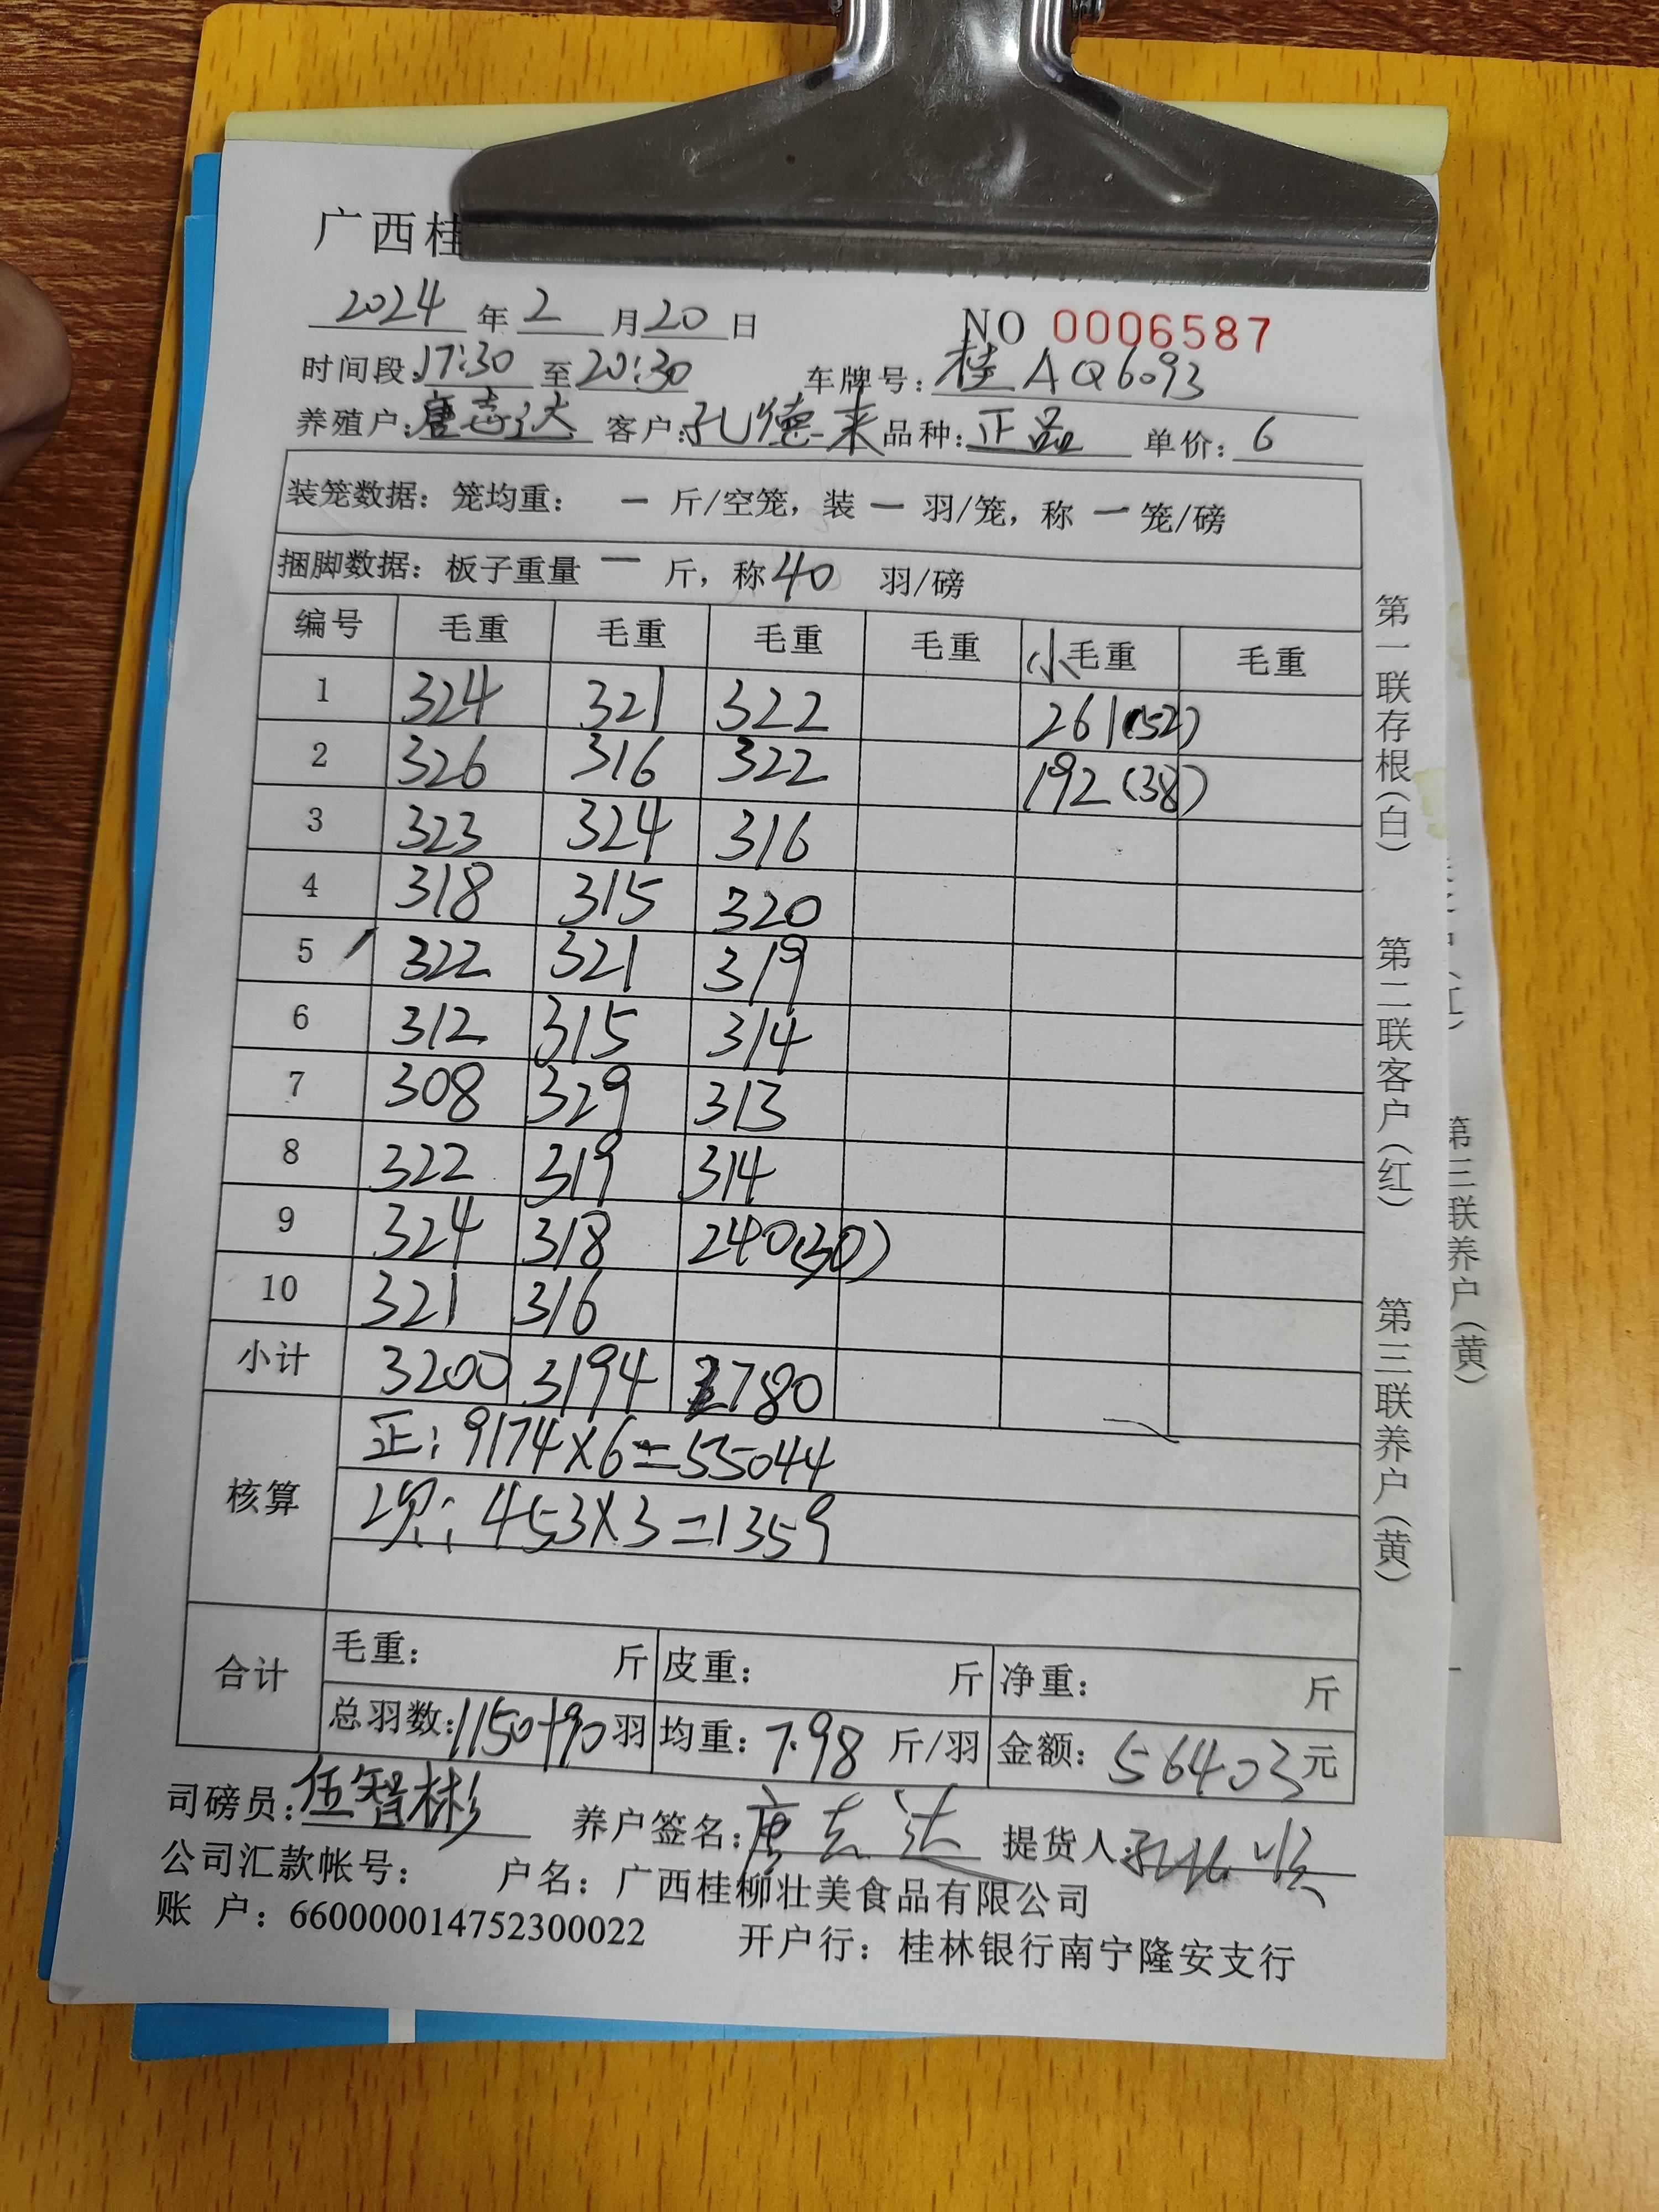 广西桂
2024 年 2 月 20 日 NO 0006587
时间段:17:30 至 20:30 车牌号: 桂AQ6093
养殖户: 唐志达 客户: 孔德来 品种: 正品 单价: 6
装笼数据: 笼均重: — 斤/空笼, 装 — 羽/笼, 称 — 笼/磅
捆脚数据: 板子重量 — 斤, 称 40 羽/磅
编号 毛重 毛重 毛重 毛重 小毛重 毛重
1 324 321 322 261(52)
2 326 316 322 192(38)
3 323 324 316
4 318 315 320
5 322 321 319
6 312 315 314
7 308 329 313
8 322 319 314
9 324 318 240(30)
10 321 316
小计 3200 3194 2780
核算 正: 9174×6=55044
次: 453×3=1359
合计 毛重: 斤 皮重: 斤 净重: 斤
总羽数: 1150+90 羽 均重: 7.98 斤/羽 金额: 56403 元
司磅员: 伍智彬 养户签名: 唐志达 提货人:
公司汇款帐号: 户名: 广西桂柳壮美食品有限公司
账 户: 660000014752300022 开户行: 桂林银行南宁隆安支行
第一联存根(白) 第二联客户(红) 第三联养户(黄)
第三联养户(黄)